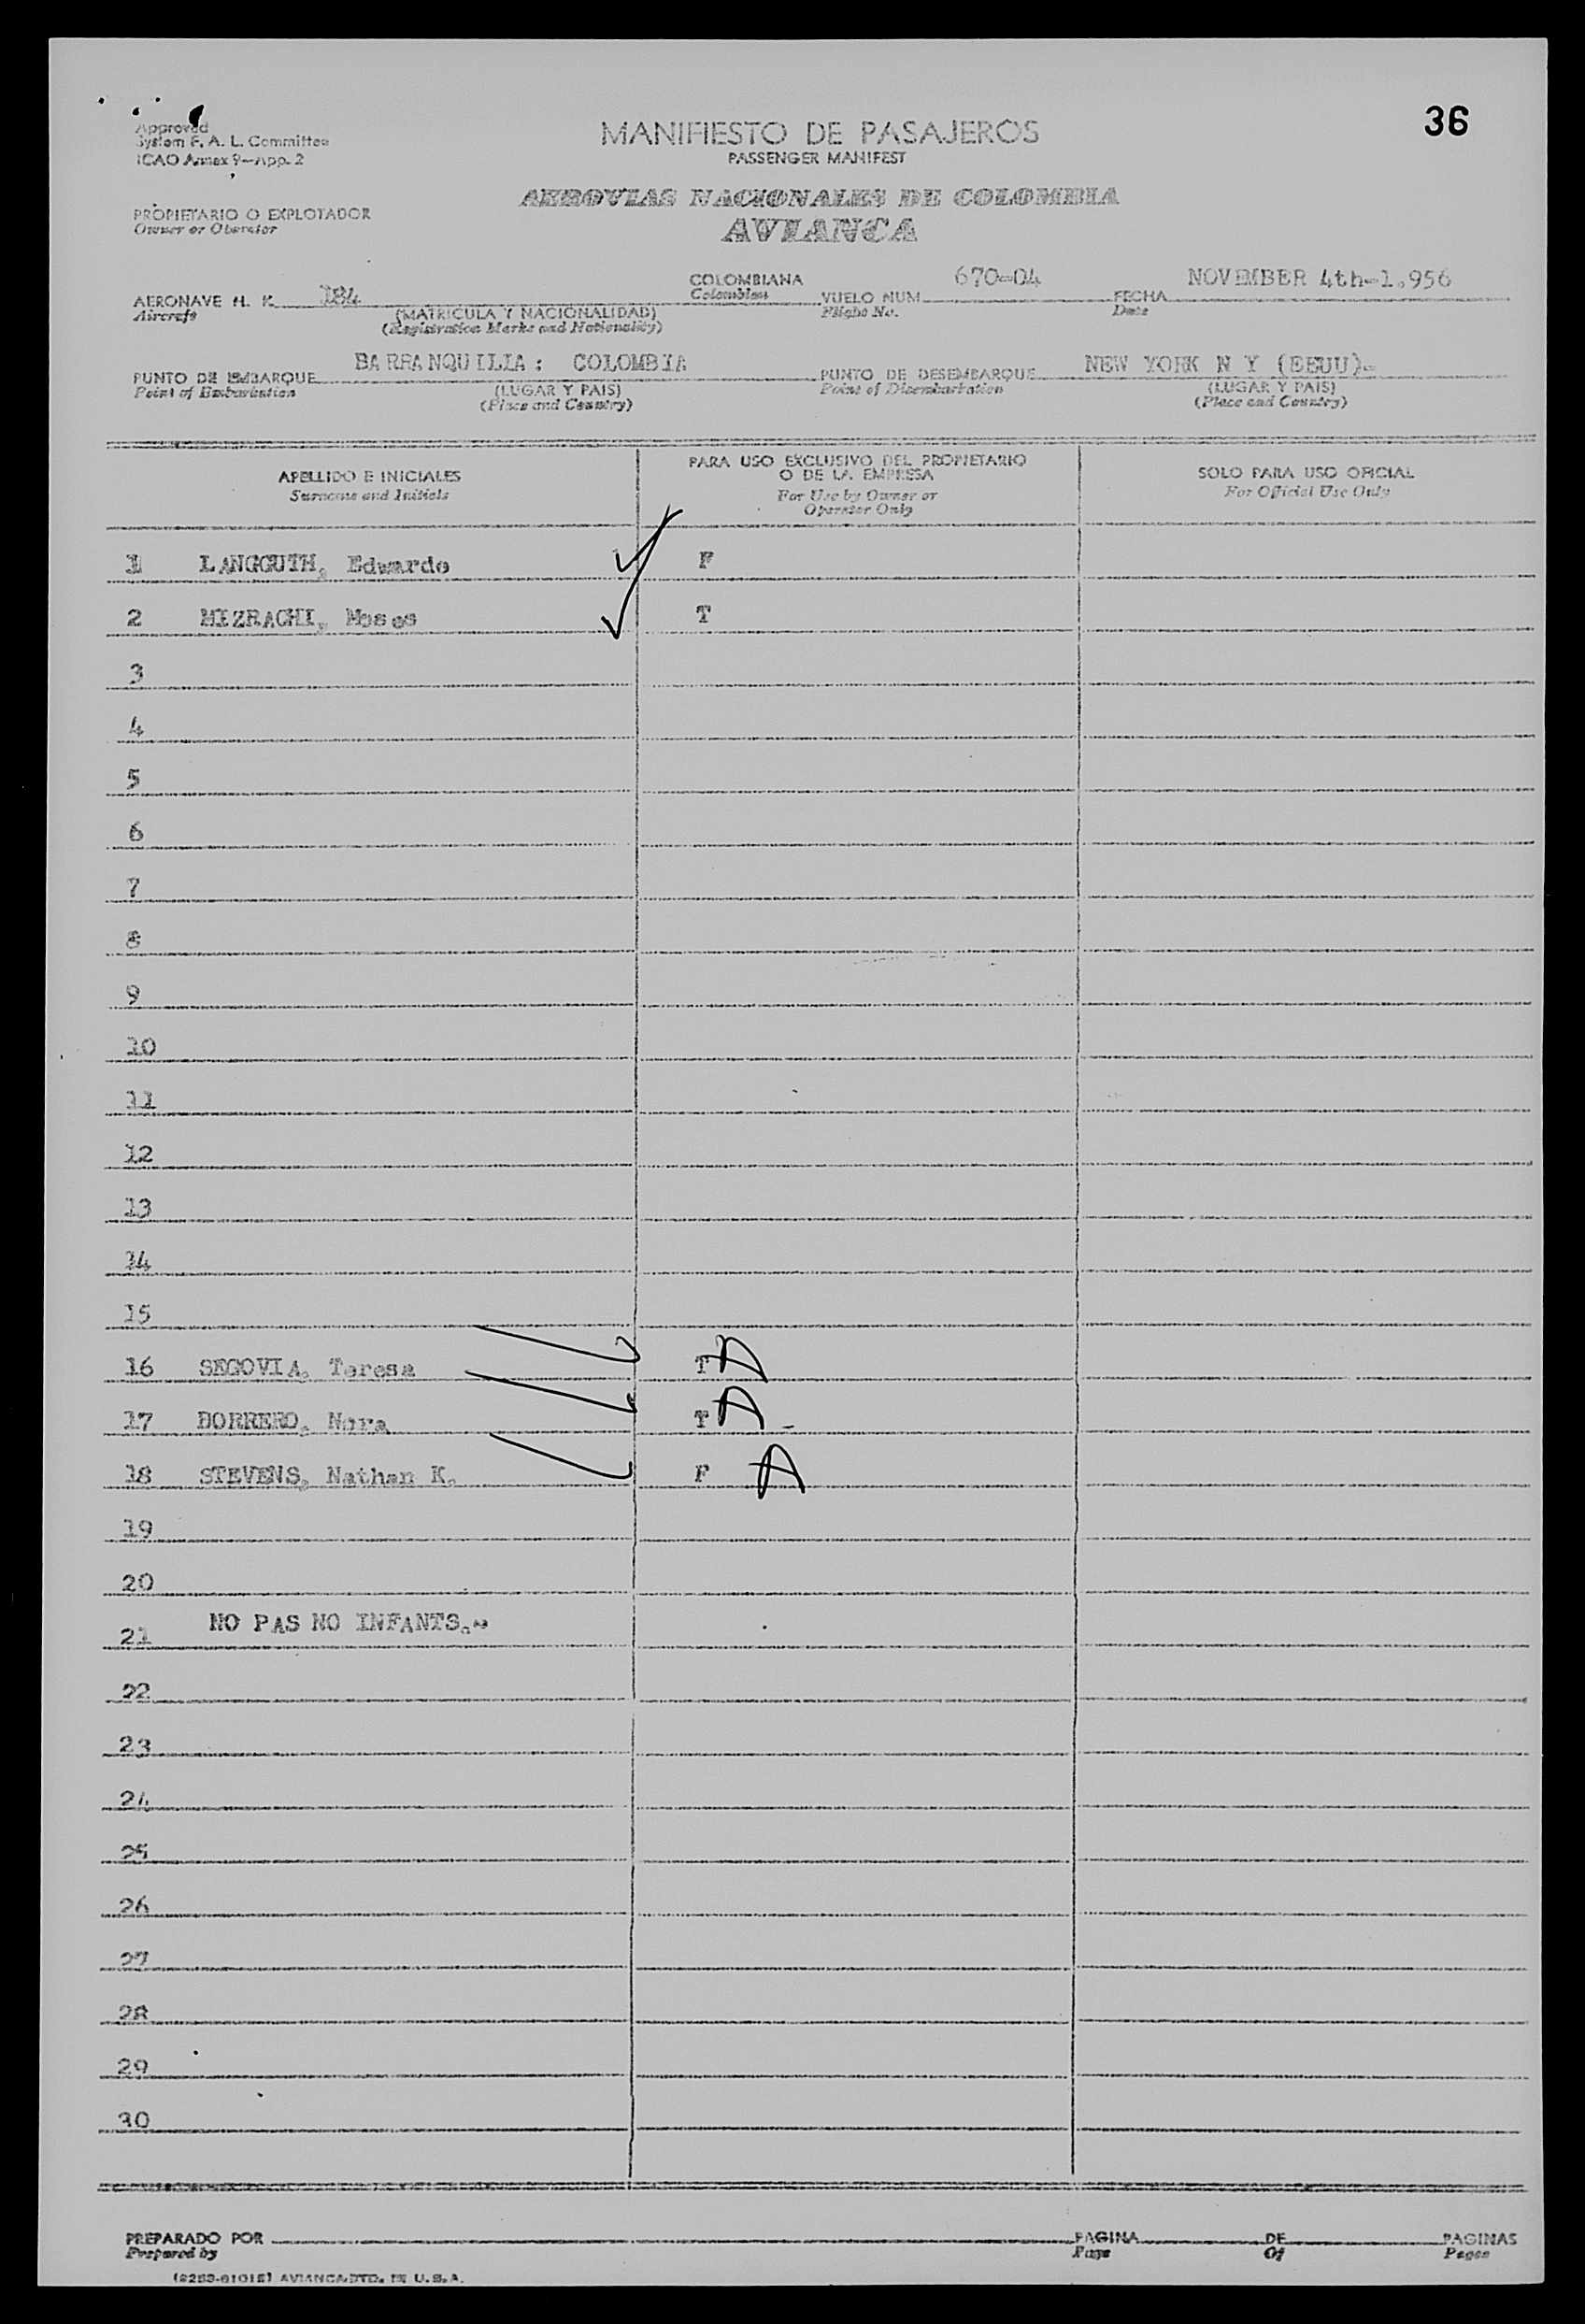 36
Approved
System F. A. L. Committee
ICAO Annex 9—App. 2
MANIFIESTO DE PASAJEROS
PASSENGER MANIFEST
AEROVIAS NACIONALES DE COLOMBIA
AVIANCA
PROPIETARIO O EXPLOTADOR
Owner or Operator
AERONAVE H. K. 184 COLOMBIANA VUELO NUM. 670-04 FECHA NOVEMBER 4th-1.956
Aircraft (MATRICULA Y NACIONALIDAD) Colombian Flight No. Date
(Registration Marks and Nationality)
PUNTO DE EMBARQUE BARRANQUILLA: COLOMBIA PUNTO DE DESEMBARQUE NEW YORK N Y (EEUU)-
Point of Embarkation (LUGAR Y PAIS) Point of Disembarkation (LUGAR Y PAIS)
(Place and Country) (Place and Country)
APELLIDO E INICIALES
Surname and Initials
PARA USO EXCLUSIVO DEL PROPIETARIO
O DE LA EMPRESA
For Use by Owner or
Operator Only
SOLO PARA USO OFICIAL
For Official Use Only
1 LANGGUTH, Edwardo F
2 MIZRACHI, Moses T
3
4
5
6
7
8
9
10
11
12
13
14
15
16 SEGOVIA, Teresa T A
17 BORRERO, Nora T A -
18 STEVENS, Nathan K. F A
19
20
21 NO PAS NO INFANTS.-
22
23
24
25
26
27
28
29
30
PREPARADO POR PAGINA DE PAGINAS
Prepared by Page Of Pages
AVIANCA-PTD. IN U.S.A.